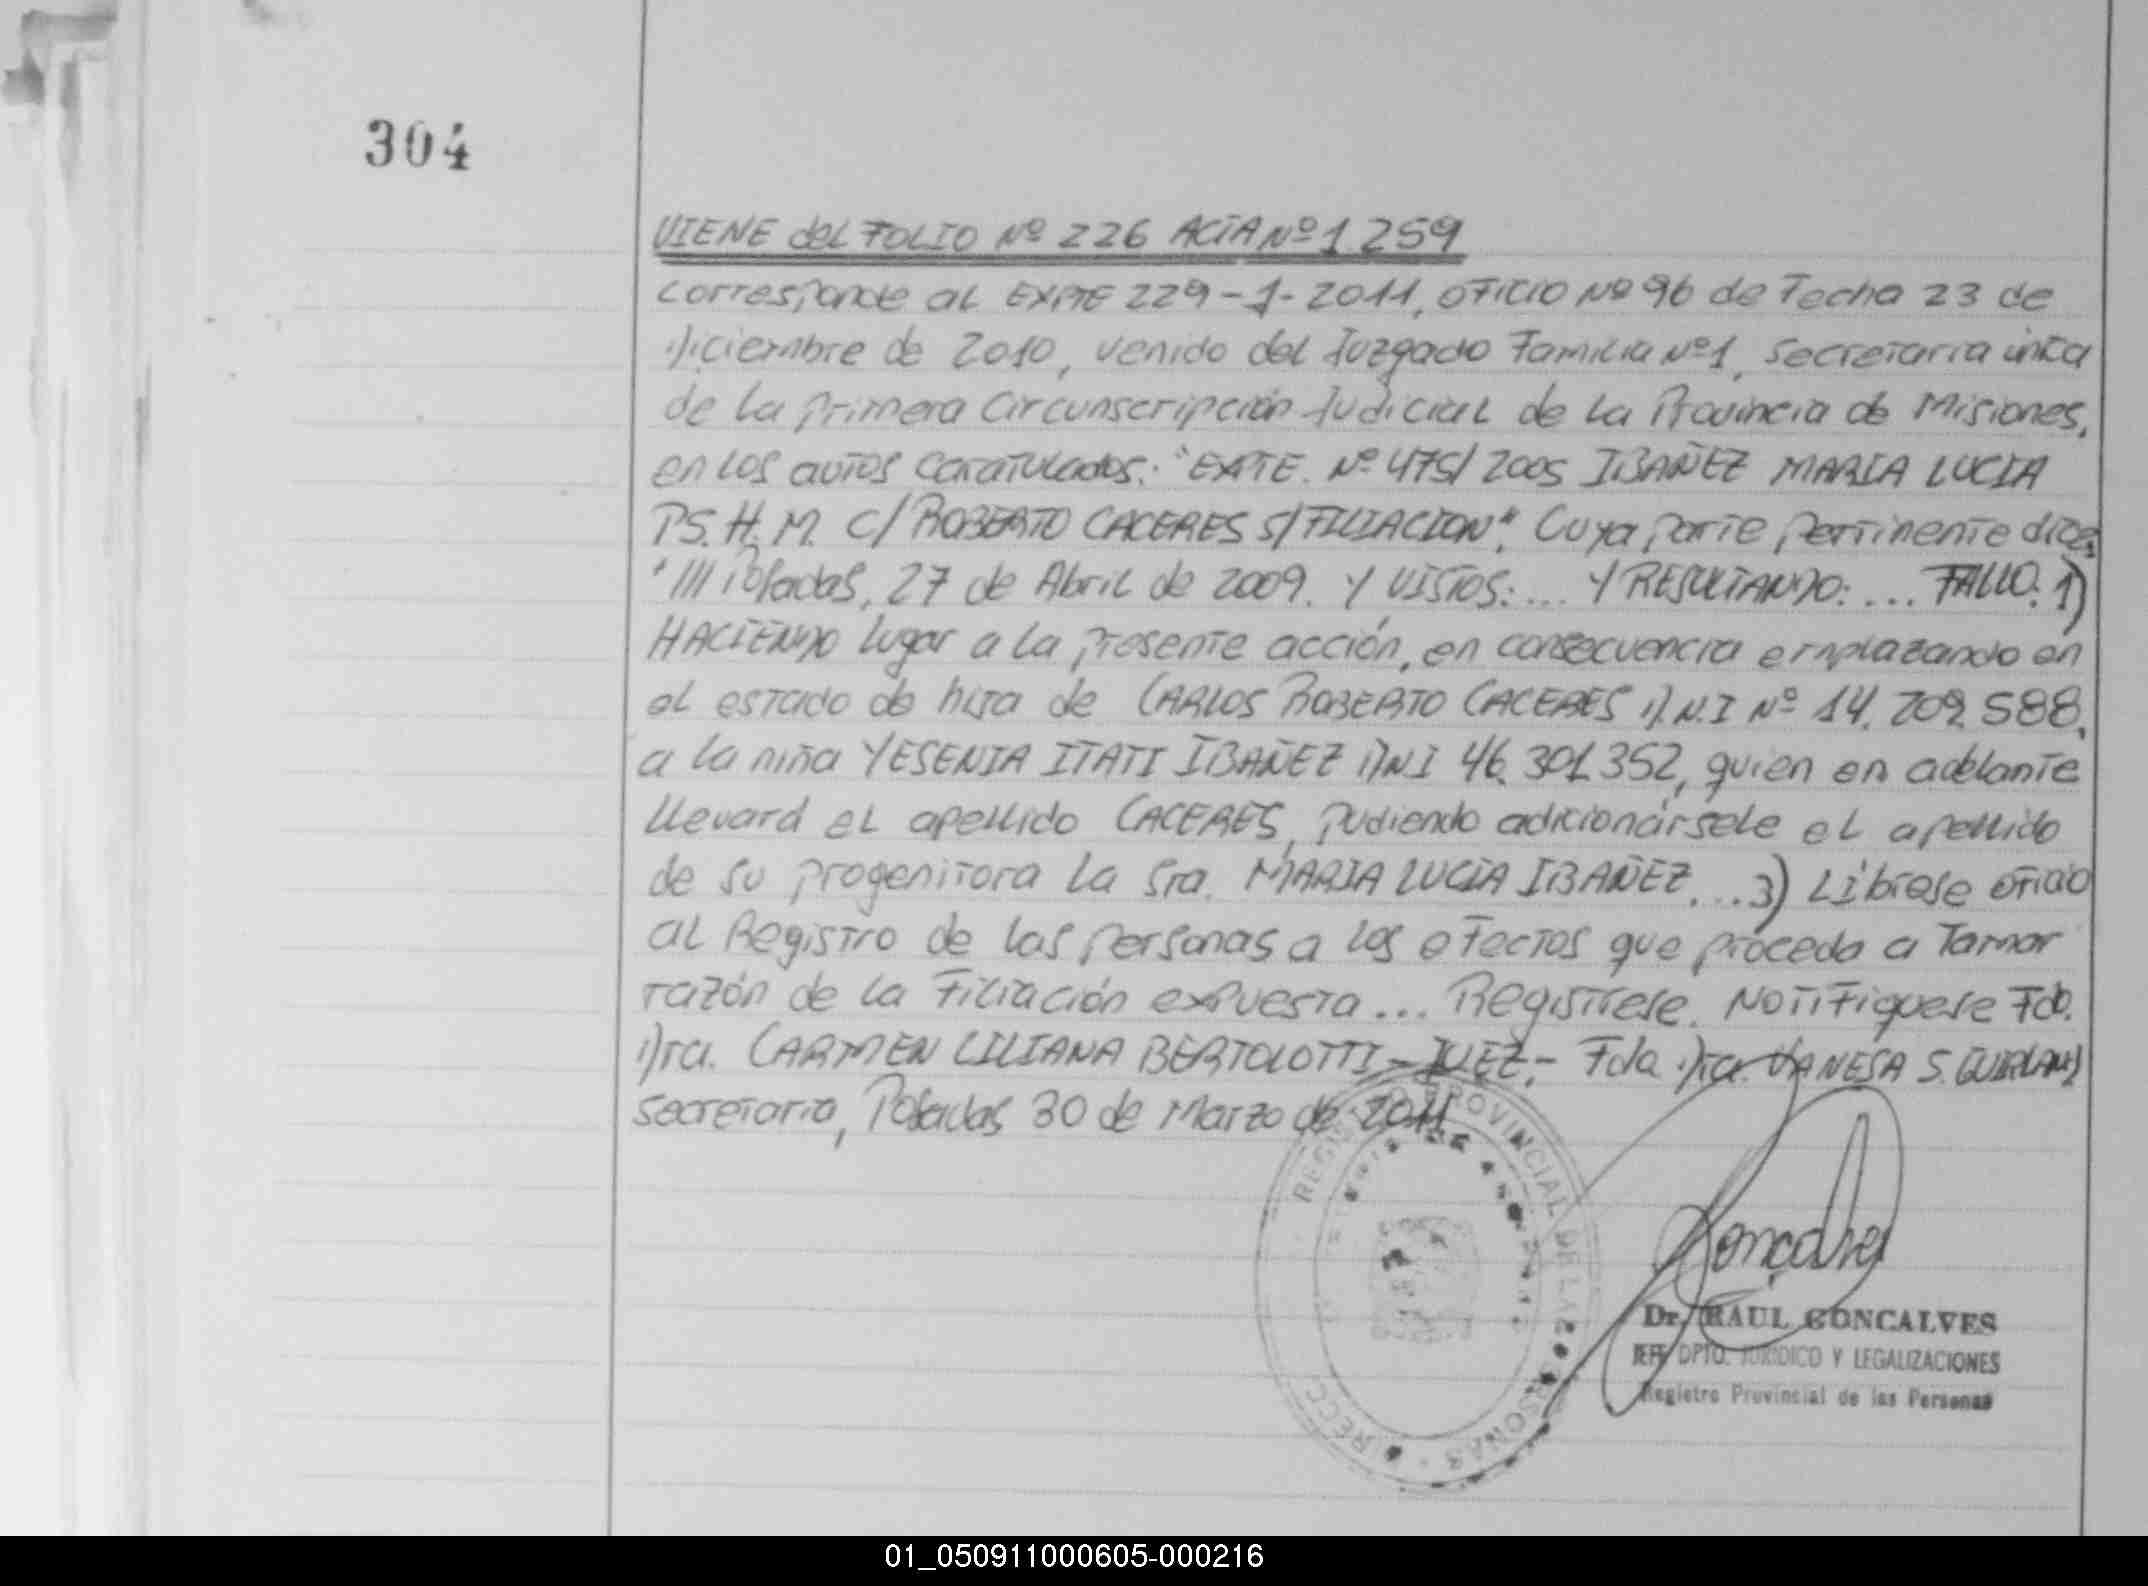 304
VIENE del FOLIO Nº 226 ACTA Nº 1259
Corresponde al EXPTE 229-J-2011, oficio Nº 96 de Fecha 23 de
Diciembre de 2010, venido del Juzgado Familia Nº1, Secretaria única
de la Primera Circunscripción Judicial de la Provincia de Misiones,
en los autos caratulados: "EXPTE. Nº 475/2005 IBAÑEZ MARIA LUCIA
P.S.H.M. C/ ROBERTO CACERES S/FILIACION", Cuya parte pertinente dice:
"/// Posadas, 27 de Abril de 2009. Y VISTOS: ... Y RESULTANDO: ... FALLO: 1)
HACIENDO lugar a la presente acción, en consecuencia emplazando en
el estado de hija de CARLOS ROBERTO CACERES D.N.I Nº 14.209.588,
a la niña YESENIA ITATI IBAÑEZ DNI 46.301.352, quien en adelante
llevará el apellido CACERES, pudiendo adicionársele el apellido
de su progenitora la Sra. MARIA LUCIA IBAÑEZ. ...3) Líbrese oficio
al Registro de las Personas a los efectos que proceda a Tomar
razón de la Filiación expuesta... Regístrese. Notifíquese Fdo.
Dra. CARMEN LILIANA BERTOLOTTI - JUEZ.- Fda Dra. VANESA S.
Secretaria, Posadas 30 de Marzo de 2011
REGISTRO PROVINCIAL DE LAS PERSONAS
Dr. RAUL GONCALVES
JEFE DPTO. JURIDICO Y LEGALIZACIONES
Registro Provincial de las Personas
01_050911000605-000216